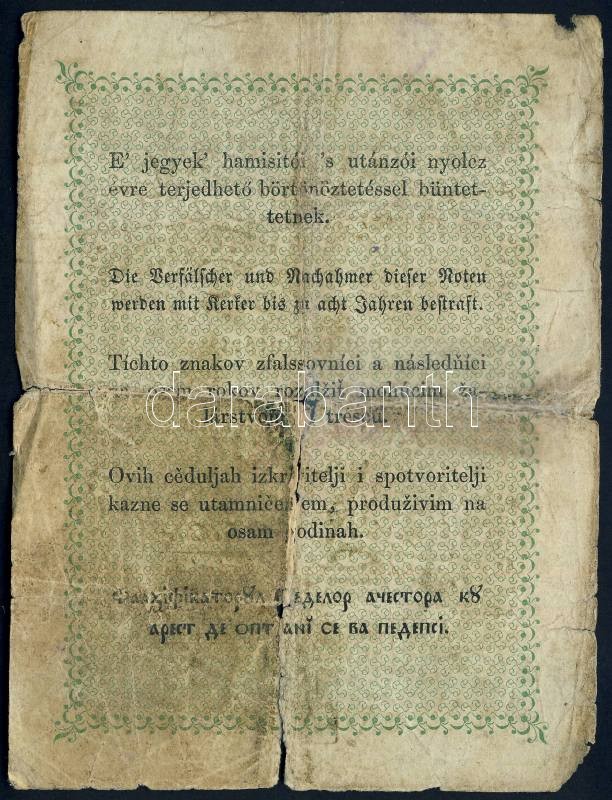 E' jegyek' hamisitói 's utánzói nyolcz
évre terjedhető börtönöztetéssel büntet-
tetnek.
Die Verfälscher und Nachahmer dieser Noten
werden mit Kerker bis zu acht Jahren bestraft.
Tíchto znakov zfalssovníci a následňíci
rokov
darabanth
Ovih cěduljah izkrivitelji i spotvoritelji
kazne se utamničenjem, produživim na
osam godinah.
ачестора кꙋ
арест де опт анї се ва педепсі.